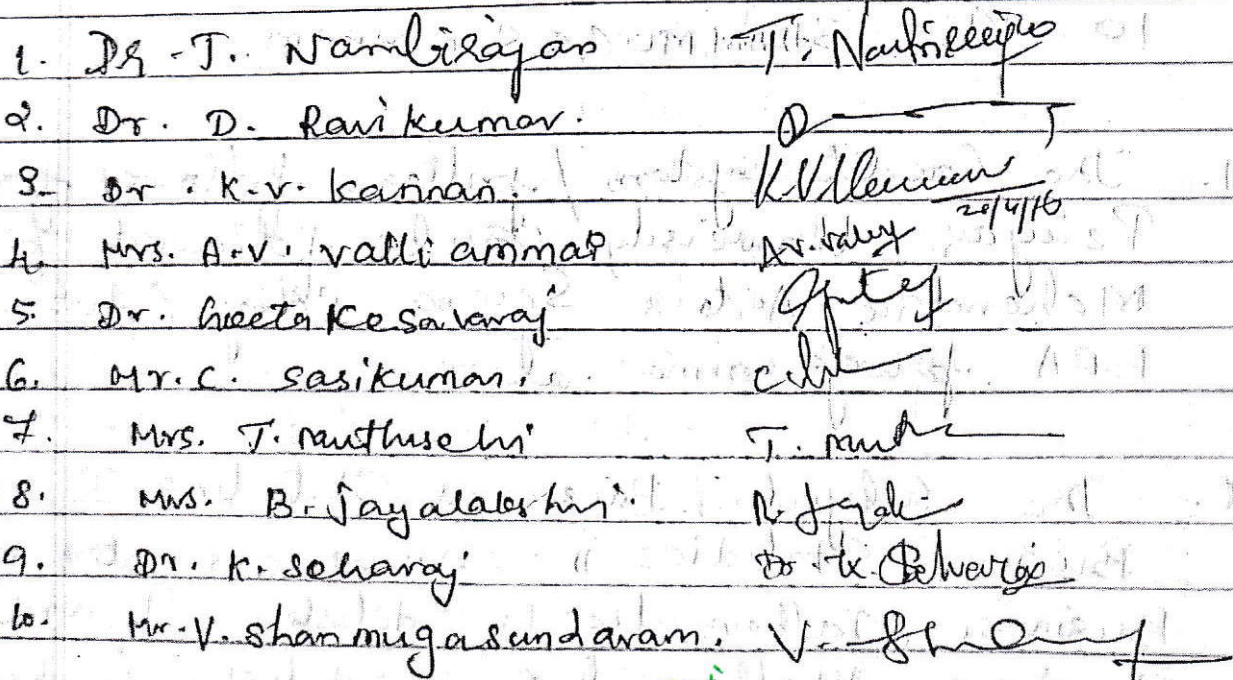 1. Dr. T. Nambirajan T. Nambirajan
2. Dr. D. Ravi kumar.
3. Dr. K.V. Kannan. K.V. Kannan
20/4/16
4. Mrs. A.V. Valli ammai Av. Valley
5. Dr. Geeta Kesavaraj
6. Mr. C. Sasikumar.
7. Mrs. T. Muthuselvi T. Muth
8. Mrs. B. Jayalakshmi.
9. Dr. K. Selvaraj Dr. K. Selvaraj
10. Mr. V. Shanmugasundaram. V. Sh